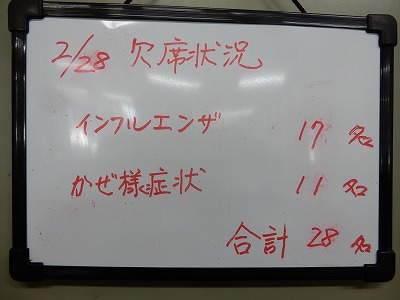 2/28 欠席状況
インフルエンザ 17 名
かぜ様症状 11 名
合計 28 名